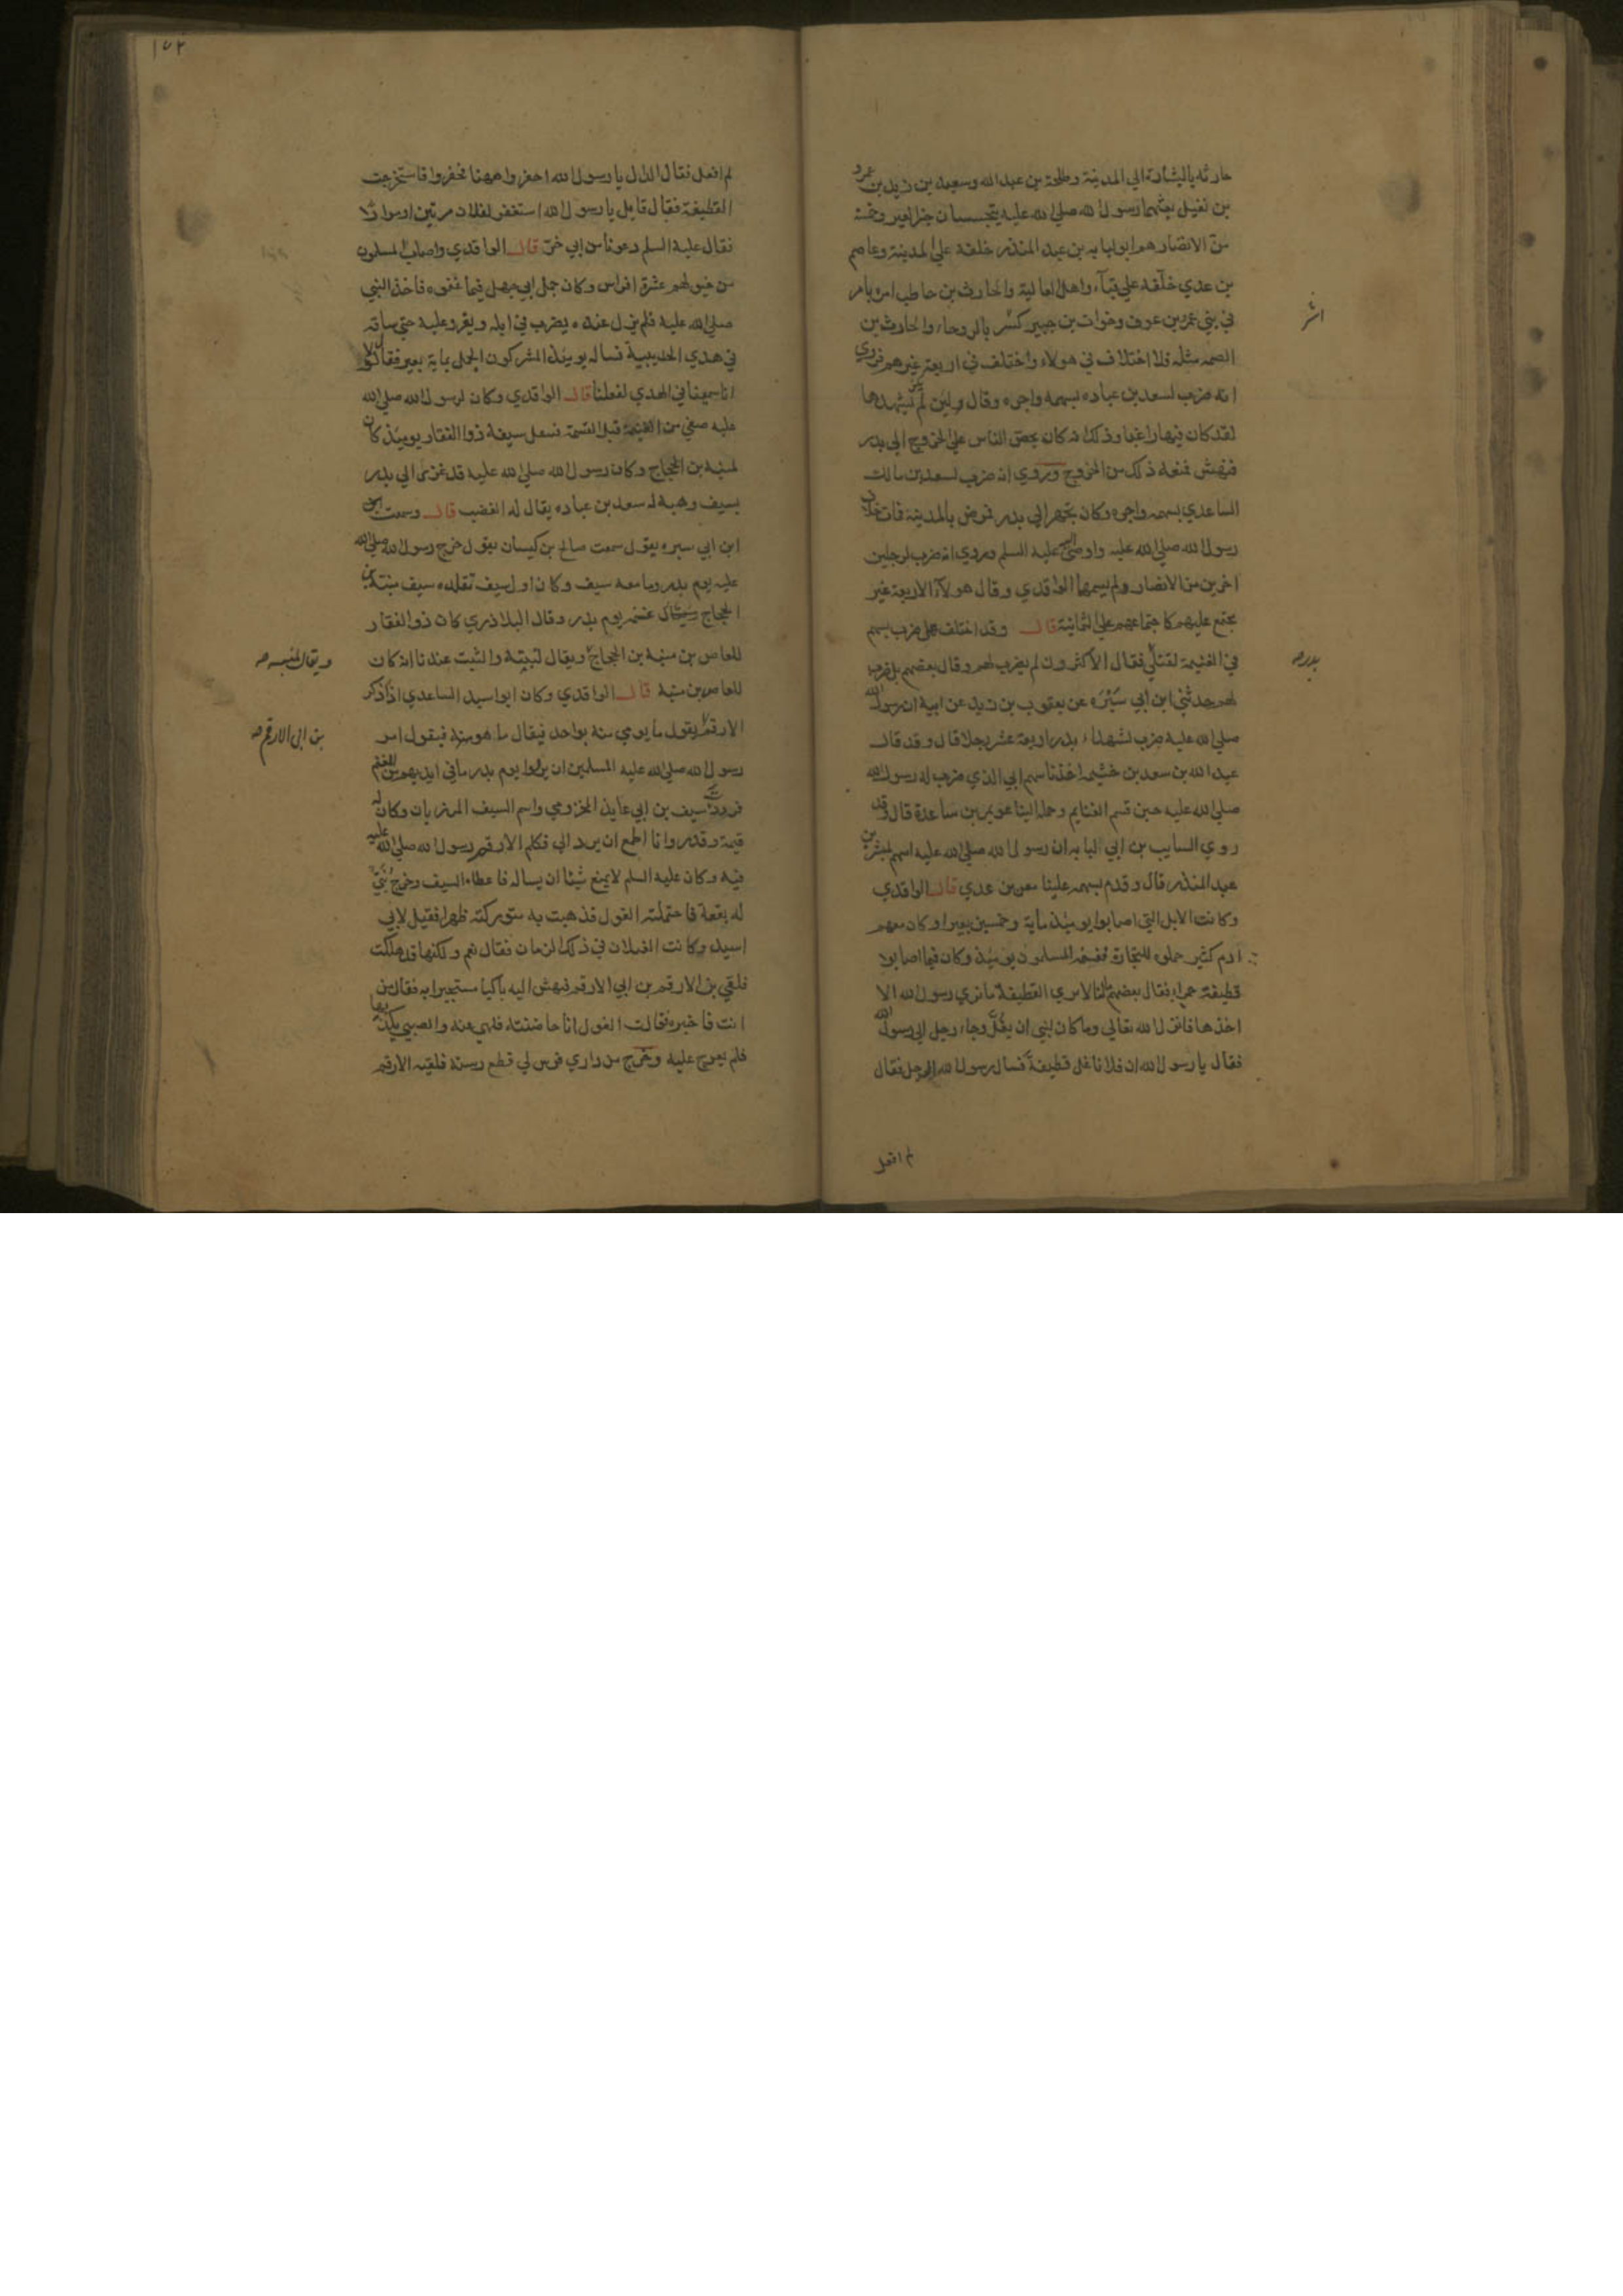 حارثه بالبشارة الي المدينة وطلحة بن عبد الله وسعيد بن زيد بن عمرو
بن نفيل بعثهما رسول الله صلي الله عليه يتجسسان خبر العير وخمسة
من الانصار هم ابو لبابه بن عبد المنذر خلفه علي المدينة وعاصم
بن عدي خلفه علي قبآء واهل العالية والحارث بن حاطب امره بامر
في بني عمرو بن عوف وخوات بن جبير كسر بالروحاء والحارث بن
الصمه مثله فلا اختلاف في هولاء واختلف في اربعة غيرهم فروي
انه ضرب لسعد بن عباده بسهمه واجره وقال ولين لم يشهدها
لقد كان فيها راغبا وذلك انه كان يحض الناس علي الخروج الي بدر
فنهش فمنعه ذلك من الخروج وروي انه ضرب لسعد بن مالك
الساعدي بسهمه واجره وكان تجهز الي بدر فمرض بالمدينة فمات خلاف
رسول الله صلي الله عليه واوصي اليه عليه السلم وروي انه ضرب لرجلين
اخرين من الانصار ولم يسمهما الواقدي وقال هولآء الاربعة غير
مجتمع عليهم كاجتماعهم علي الثمانية قال وقد اختلف هل ضرب بسهم
في الغنيمة لقتلي فقال الاكثرون لم يضرب لهم وقال بعضهم بل ضرب
لهم حدثني ابن ابي سبره عن يعقوب بن زيد عن ابيه ان رسول الله
صلي الله عليه ضرب لشهداء بدر اربعة عشر رجلا قال وقد قال
عبد الله بن سعد بن خثيمه اخذنا سهم ابي الذي ضرب له رسول الله
صلي الله عليه حين قسم الغنايم وحمله الينا عويمر بن ساعدة قال وقد
روي السايب بن ابي لبابه ان رسول الله صلي الله عليه اسهم لمبشر بن
عبد المنذر قال وقدم بسهمه علينا معن بن عدي قال الواقدي
وكانت الابل التي اصابوا يومئذ ماية وخمسين بعيرا وكان معهم
ادم كثير حملوه للتجارة فغنمه المسلمون يومئذ وكان فيما اصابوا
قطيفة حمراء فقال بعضهم مالنا لا نري القطيفة ما نري رسول الله الا
اخذها فانزل الله تعالي وما كان لنبي ان يغل وجاء رجل الي رسول الله
فقال يا رسول الله ان فلانا غل قطيفة فسال رسول الله الرجل فقال
لم افعل
بدر صح
١٧٢
لم افعل فقال الدال يا رسول الله احفروا ههنا فحفروا فاستخرجت
القطيفة فقال قايل يا رسول الله استغفر لفلان مرتين او مرارا
فقال عليه السلم دعونا من ابي خر قال الواقدي واصاب المسلمون
من خيولهم عشرة افراس وكان جمل ابي جهل فيما غنموه فاخذه النبي
صلي الله عليه فلم يزل عنده يضرب في ابله ويغزو عليه حتي ساقه
في هدي الحديبية فساله يومئذ المشركون الجمل بماية بعير فقال لولا
انا سميناه في الهدي لفعلنا قال الواقدي وكان لرسول الله صلي الله
عليه صفي من الغنيمة قبل القسمة فتنفل سيفه ذوالفقار يومئذ كان
لمنبه بن الحجاج وكان رسول الله صلي الله عليه قد غزى الي بدر
بسيف وهبه له سعد بن عباده يقال له العضب قال وسمعت
ابن ابي سبره يقول سمعت صالح بن كيسان يقول خرج رسول الله صلي الله
عليه يوم بدر وما معه سيف وكان اول سيف تقلده سيف منبه بن
الحجاج غنمه يوم بدر وقال البلاذري كان ذوالفقار
للعاص بن منبه بن الحجاج ويقال لنبيه والثبت عندنا انه كان
للعاص بن منبه قال الواقدي وكان ابو اسيد الساعدي اذا ذكر
الارقم يقول ما يومي منه بواحد فيقال ما هو منه فيقول امر
رسول الله صلي الله عليه المسلمين ان يردوا يوم بدر ما في ايديهم من المغنم
فرددت سيف بن ابي عايذ المخزومي واسم السيف المرزبان وكان له
قيمة وقدر وانا اطمع ان يرد الي فكلم الارقم رسول الله صلي الله عليه
فيه وكان عليه السلم لا يمنع شيئا ان يساله فاعطاه السيف وخرج بني
له يفعة فاحتملته الغول فذهبت به متوركته ظهرا فقيل لابي
اسيد وكانت الغيلان في ذلك الزمان فقال نعم ولكنها قد هلكت
فلقي بن الارقم بن ابي الارقم فبهش اليه باكيا مستجيرا به فقال من
انت فاخبره فقالت الغول انا حاضنته فلهي عنه والصبي يكذبها
فلم يعرج عليه وخرج من داري فرس لي قطع رسنه فلقيه الارقم
ويقال لمنبه صح
بن ابي الارقم صح